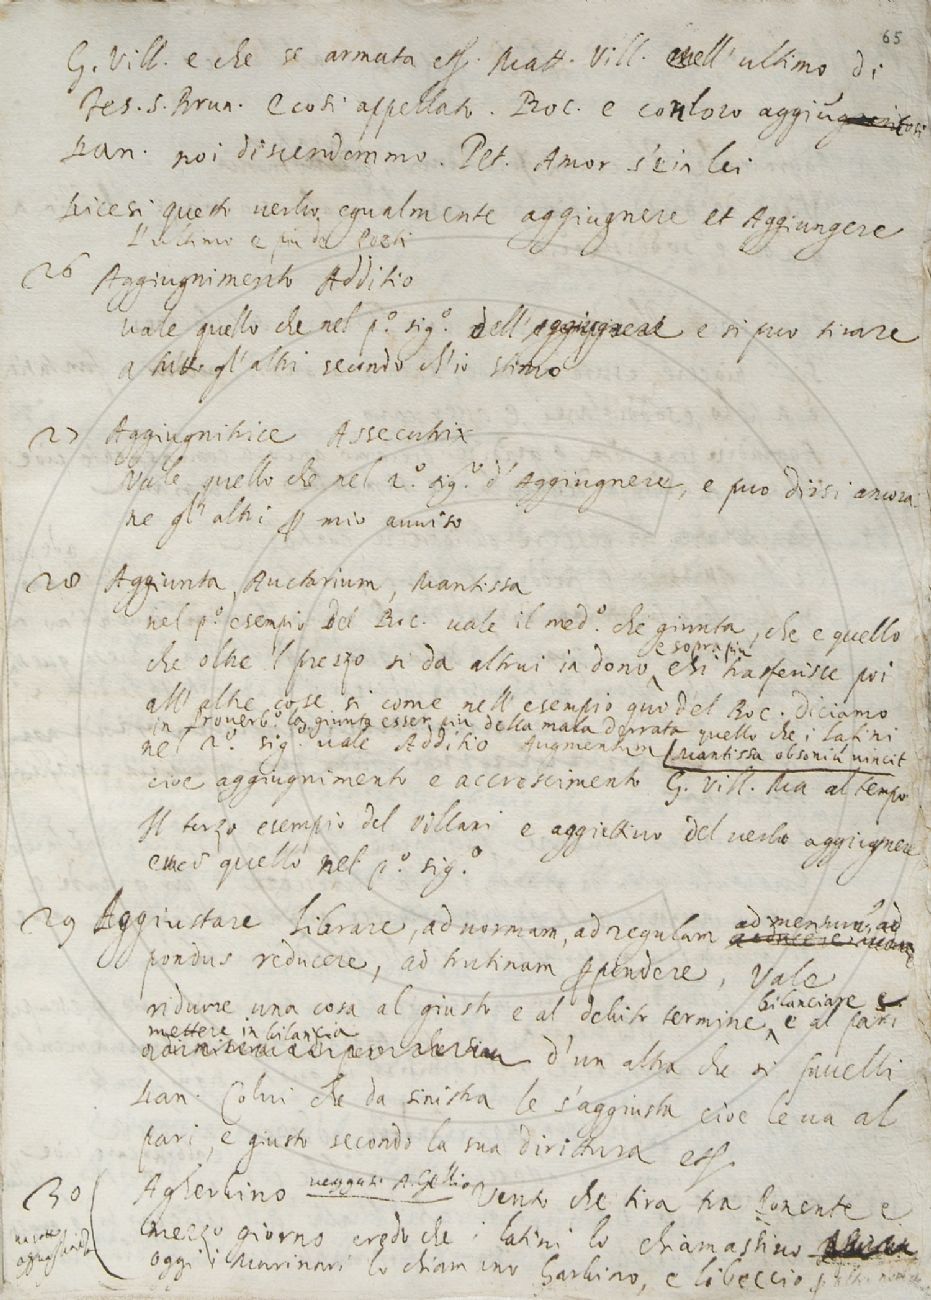 65
G. Vill. e che se armata ess. Matt. Vill. nell'ultimo di
Tes. S. Brun. E così appellato. Boc. e con loro aggiu
Dan. noi discendemmo. Pet. Amor s'è in lei
Dicesi questo verbo egualmente aggiugnere et Aggiungere
L'ultimo e più da Poeti
26 Aggiugnimento Additio
vale quello che nel p.º sig.º dell'aggiugnere e si puo tirare
a tutti gl'altri secondo ch'io stimo
27 Aggiugnitrice Assecutrix
Vale quello che nel 2.º sig.º d'Aggiugnere, e puo dirsi ancora
ne gl'altri p mio avviso
28 Aggiunta, Auctarium, Mantissa
nel p.º esempio del Boc. vale il med.º che giunta, che e quello
che oltre 'l prezzo si da altrui in dono, e si trasferisce poi
e sopra più
all'altre cose si come nell'esempio quo del Boc. diciamo
in Proverb.º la giunta esser più della mala derrata quello che i latini
nel 2.º sig.º vale Additio Augmentum (Mantissa obsoniũ vincit
cioe aggiugnimento e accrescimento G. Vill. Ma al tempo
Il terzo esempio del Villani e aggiettivo del verbo aggiugnere
quello nel p.º sig.º
29 Aggiustare librare, ad normam, ad regulam ad mensurã, ad
pondus reducere, ad trutinam ppendere, Vale
ridurre una cosa al giusto e al debito termine, e al pari
bilanciare e
mettere in bilancia
d'un altra che si favelli
Dan. Colui che da sinistra le s'aggiusta cioe le va al
pari, e giusto secondo la sua dirittura ess.
30 Agherbino veggasi A. Gellio Vento che tira tra Ponente e
mezzo giorno credo che i latini lo chiamassino
oggi i Marinari lo chiamano Garbino, e libeccio